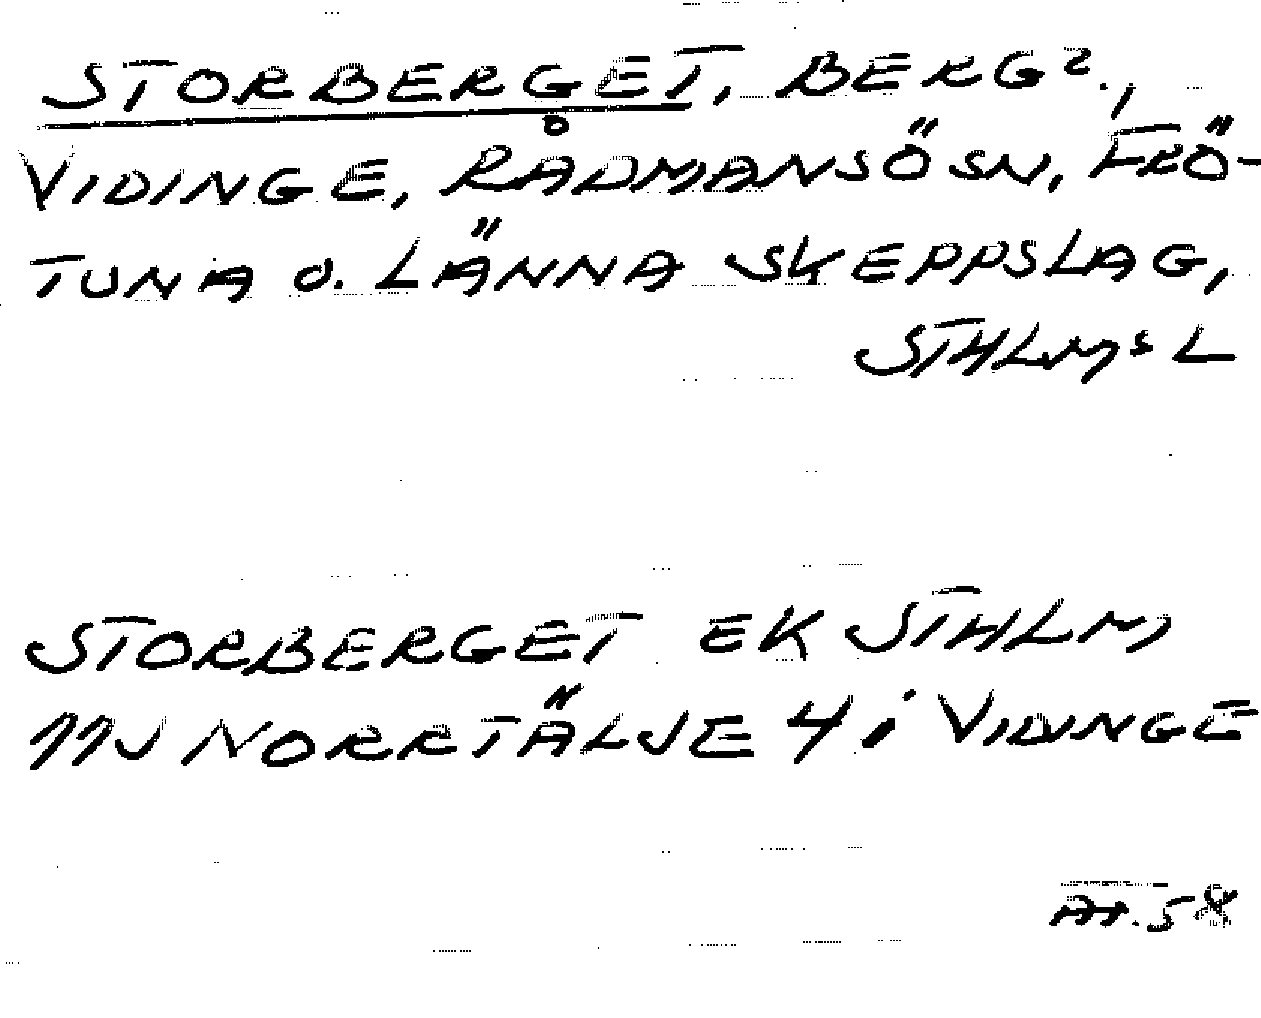 STORBERGET, BERG2.,
VIDINGE, RÅDMANSÖ SN, FRÖ-
TUNA O. LÄNNA SKEPPSLAG,
STHLMS L
STORBERGET EK STHLM
11J NORRTÄLJE 4 i VIDINGE
58